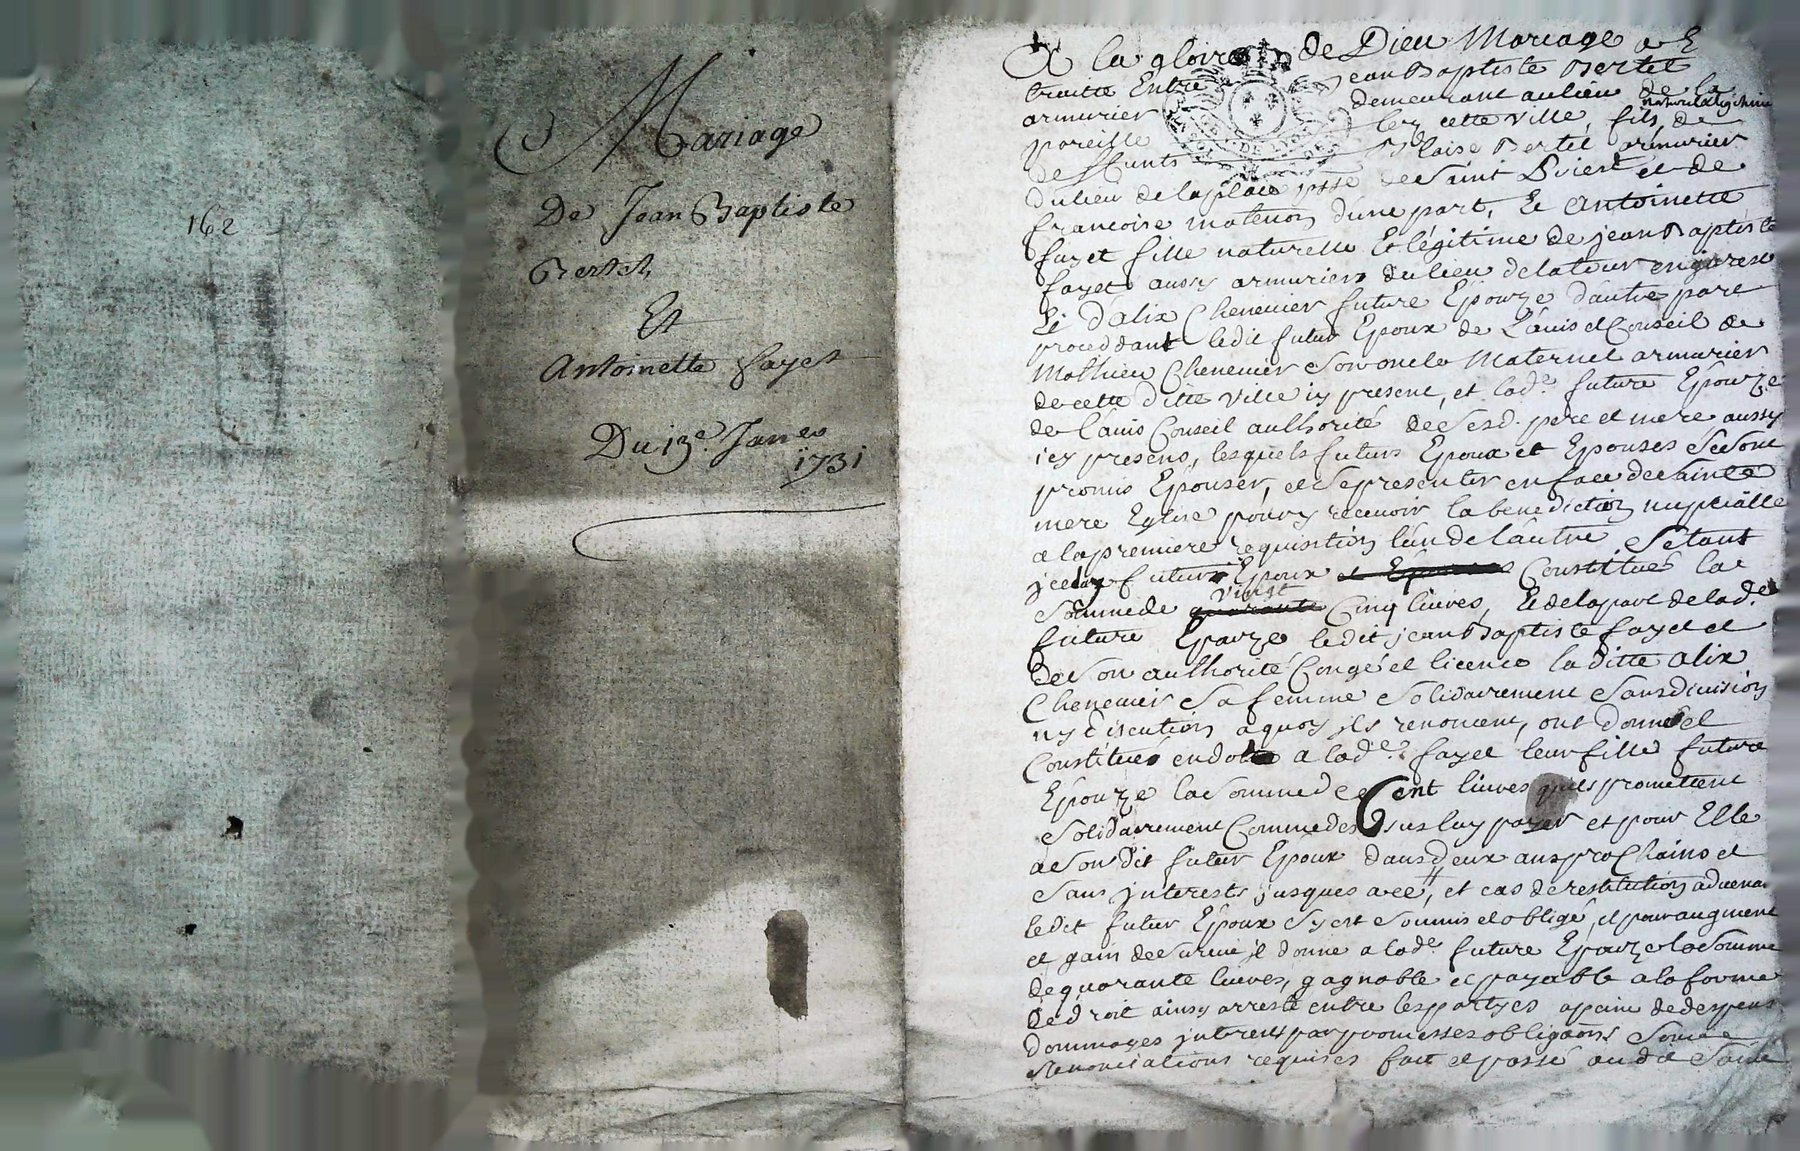 162
Mariage
De Jean Baptiste
Bertet,
Et
Antoinette fayet
Du 13e. Janer
1731
A la gloire de Dieu Mariage a E
traitte Entre Jean Baptiste Bertet
armurier demeurant au lieu de la
pareille cette ville, fils de
de Blaise Bertet armurier
du lieu de la place de Saint Priest et de
francoise matenon d'une part, Et Antoinette
fayet fille naturelle Et légitime de jean Baptiste
fayet aussy armurier du lieu de latour en
Et D'alix Chenevier future Epouze d'autre part
proceddant ledit futur Epoux de L'auis et Conseil de
Mathieu Chenevier Son oncle Maternel armurier
de cette ditte Ville icy present, et lade. future Epouze
de l'auis Conseil authorité de Sesd. pere et mere aussy
icy presens, lesquels futurs Epoux et Epouses Se Sont
promis Epouser, et Se presenter en face de Sainte
mere Eglise pour y recevoir la benediction nuptialle
a la premiere requisition l'un de l'autre Sétant
futur Epoux Constitué la
Somme de vingt Cinq liures, Et de la part de lade.
future Epouze ledit jean Baptiste fayet et
de Son authorité Congé et licence la ditte alix
Chenevier Sa femme Solidairement Sans diuision
ny discution a quoy ils renoncent, ont donné et
Constitué en dot a lade. fayet leur fille future
Epouze la Somme de Cent liures quils promettent
Solidairement Comme dessus luy payer et pour Elle
a Son Dit futur Epoux dans deux ans prochains et
Sans jnterests jusques a ce, et cas de restitution aduenant
ledit futur Epoux S'y est Soumis et obligé, et pour augment
et gain de Suruie il donne a lade. future Epouze la Somme
de quarante liures, gagnable et payable a la forme
de droit ainsy arresté entre les partyes a paine de despens
dommages jnterests par promesses obligaons. Soumi
Renonciations requises fait et passé audit Saint